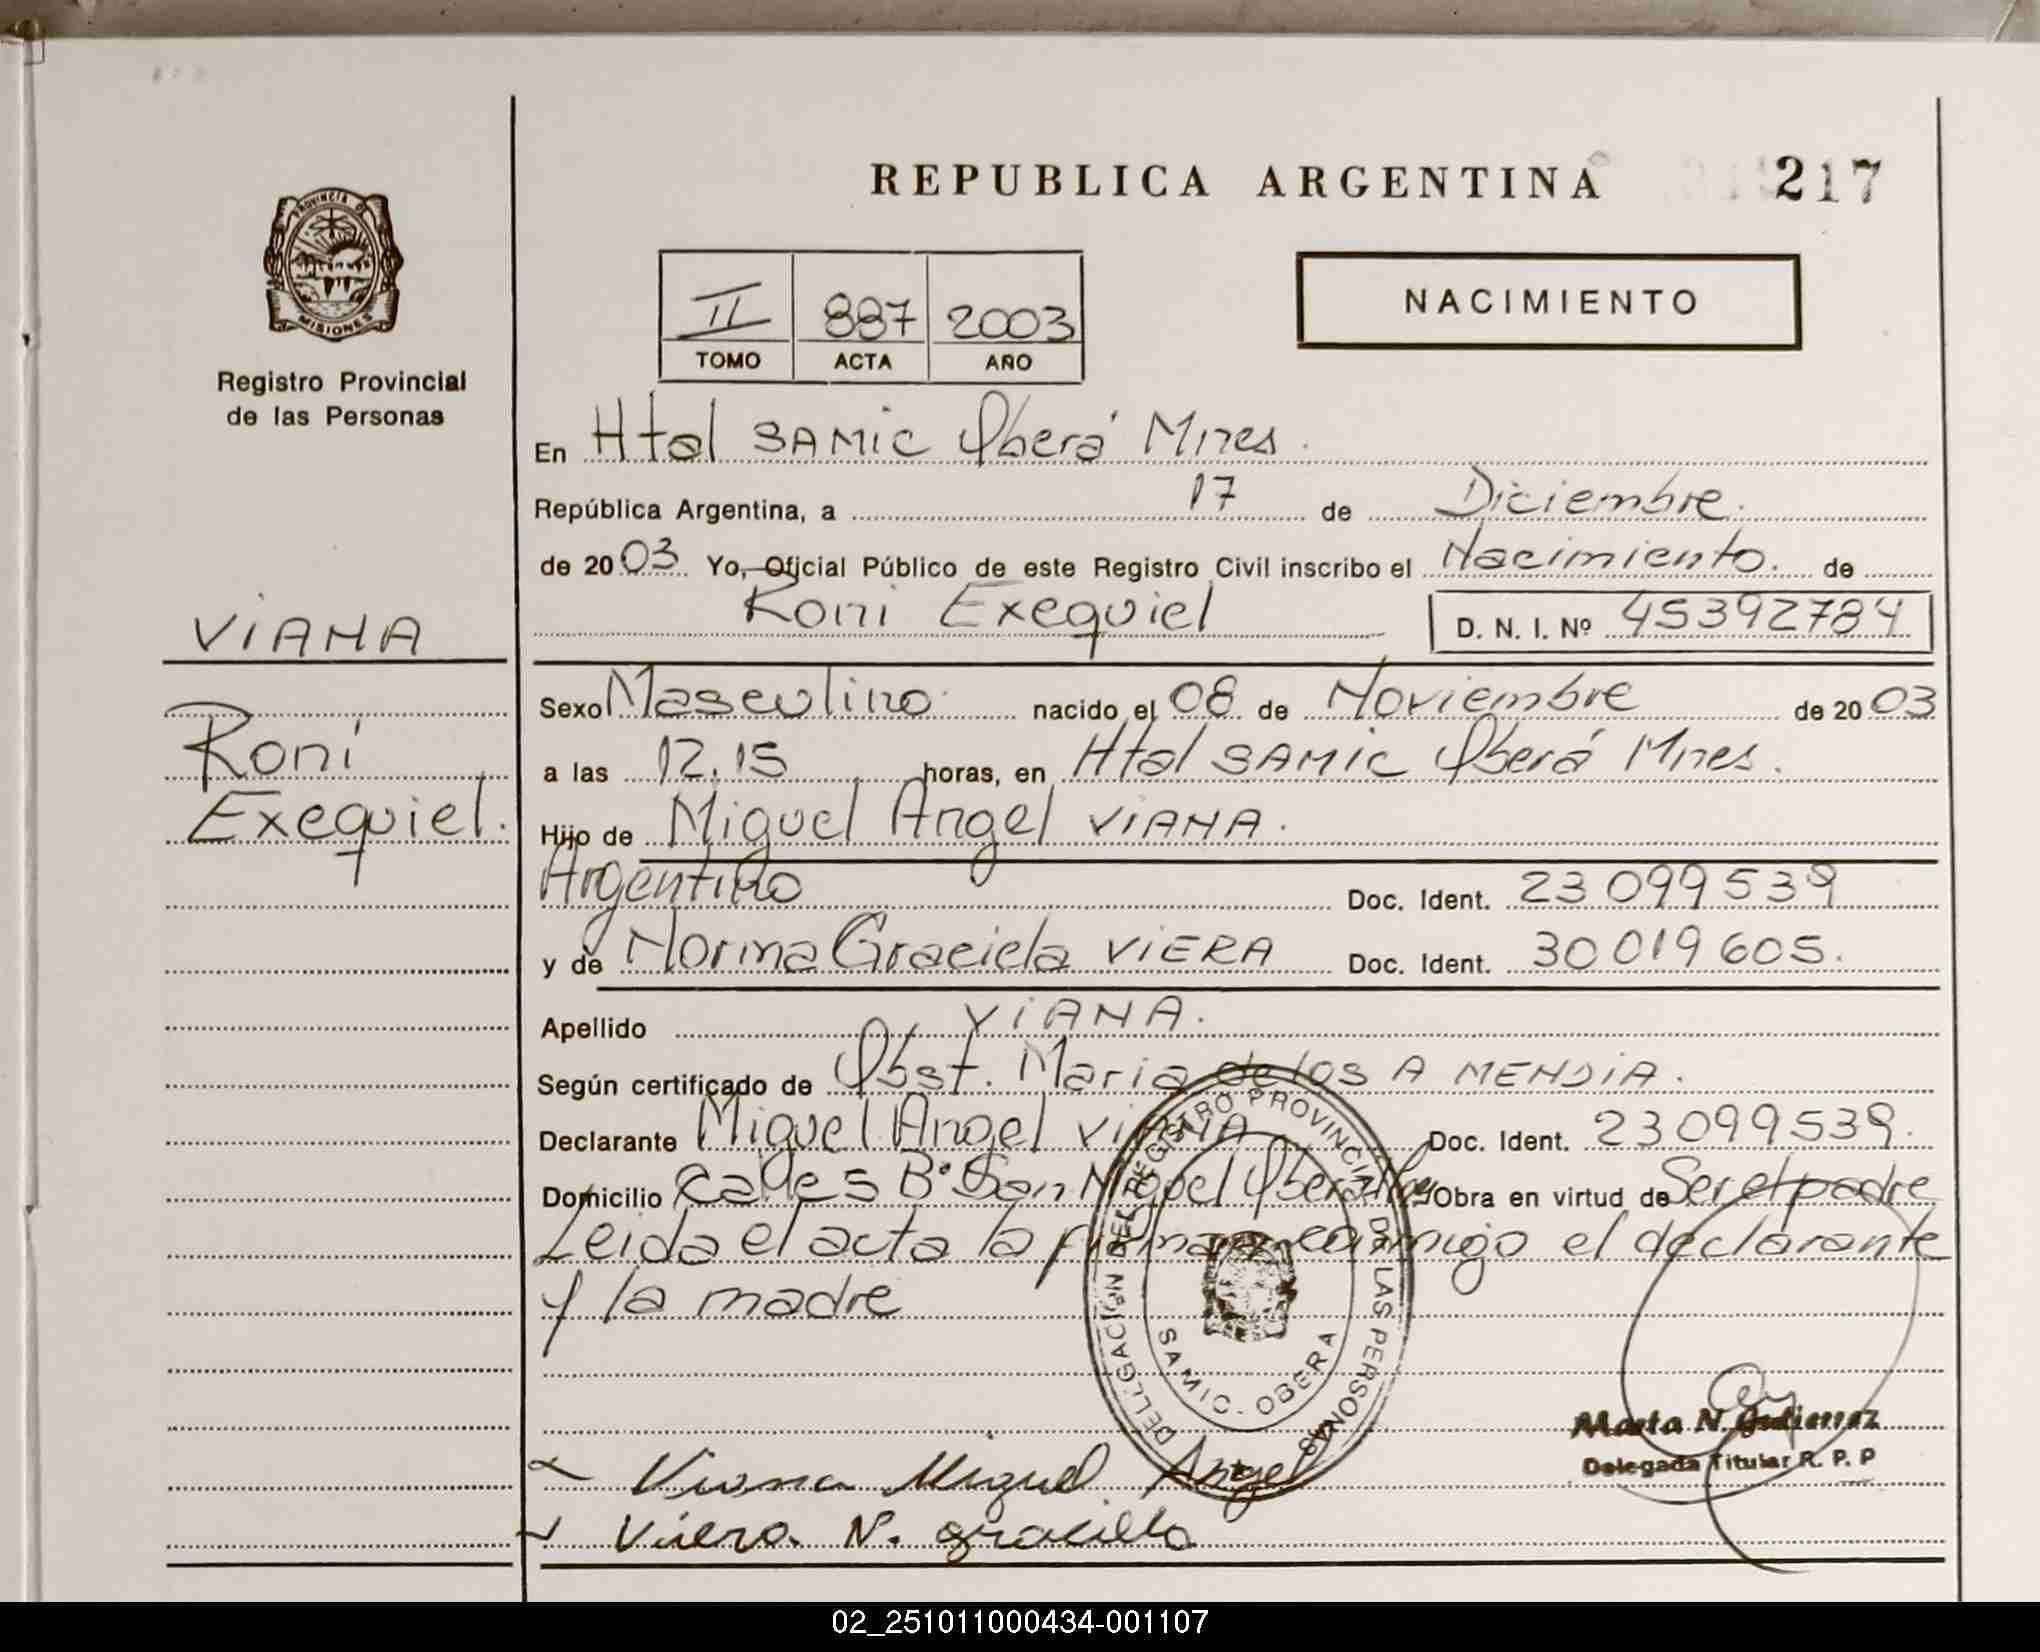 REPUBLICA ARGENTINA
217
PROVINCIA DE
MISIONES
Registro Provincial
de las Personas
II 887 2003
TOMO ACTA AÑO
NACIMIENTO
En Htal SAMIC Oberá Mnes.
República Argentina, a 17 de Diciembre.
de 2003 Yo, Oficial Público de este Registro Civil inscribo el Nacimiento. de
Roni Exequiel D. N. I. Nº 45392784
VIANA
Roni
Exequiel.
Sexo Masculino nacido el 08 de Noviembre de 2003
a las 12.15 horas, en Htal SAMIC Oberá Mnes.
Hijo de Miguel Angel VIANA.
Argentino Doc. Ident. 23099539
y de Norma Graciela VIERA Doc. Ident. 30019605.
Apellido VIANA.
Según certificado de Obst. Maria de los A MENDIA.
Declarante Miguel Angel VIANA Doc. Ident. 23099539.
Domicilio Calle 5 Bº San Miguel Oberá Obra en virtud de Ser el padre
Leida el acta la firman conmigo el declarante
y la madre
DELEGACIÓN DEL REGISTRO PROVINCIAL DE LAS PERSONAS
SAMIC - OBERA
Marta N. Gutierrez
Delegada Titular R. P. P
Viana Miguel Angel
Viera N. graciela
02_251011000434-001107